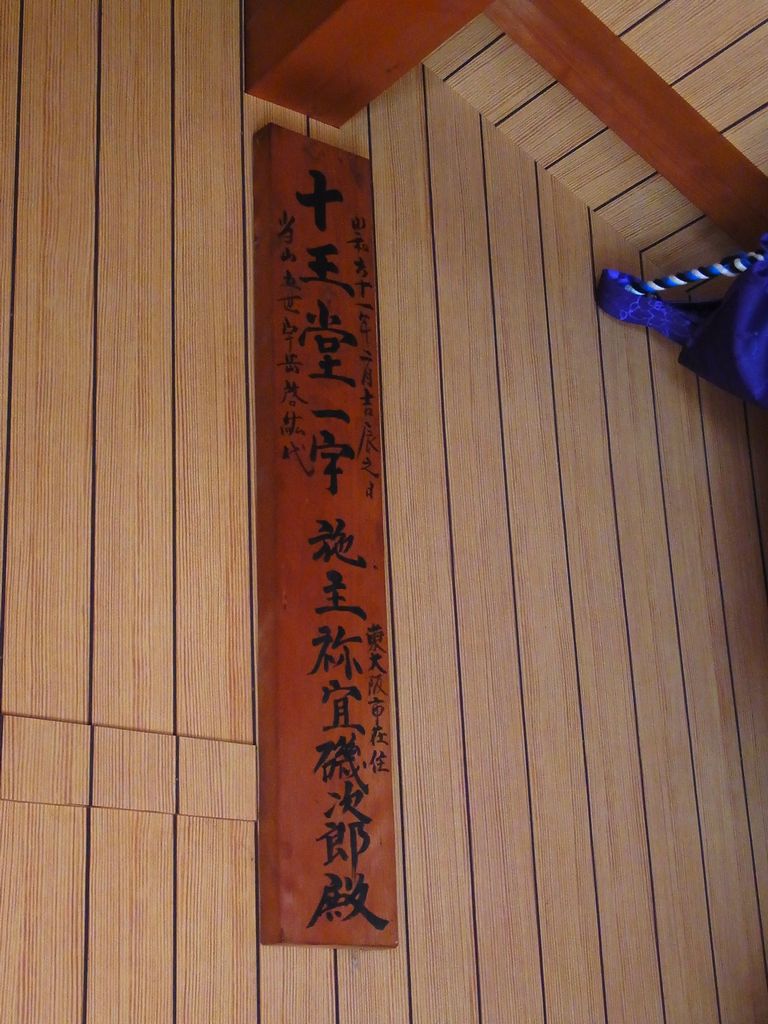 昭和六十一年二月吉辰之日
十王堂一宇 施主祢宜磯次郎殿
東大阪市在住
当山五世卓岳啓紘代